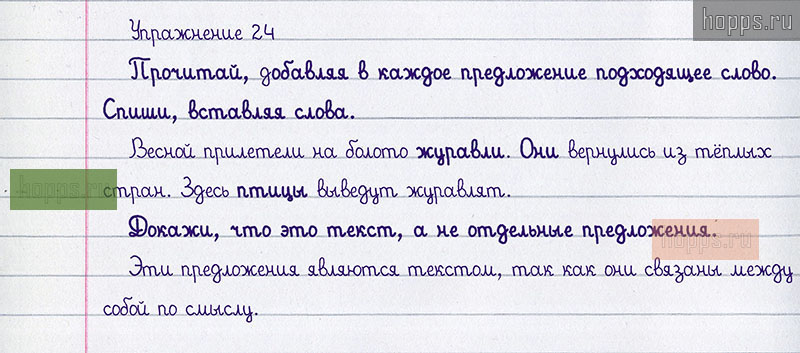 hopps.ru
Упражнение 24
Прочитай, добавляя в каждое предложение подходящее слово.
Спиши, вставляя слова.
Весной прилетели на болото журавли. Они вернулись из тёплых
hopps.ru
стран. Здесь птицы выведут журавлят.
Докажи, что это текст, а не отдельные предложения.
hopps.ru
Эти предложения являются текстом, так как они связаны между
собой по смыслу.